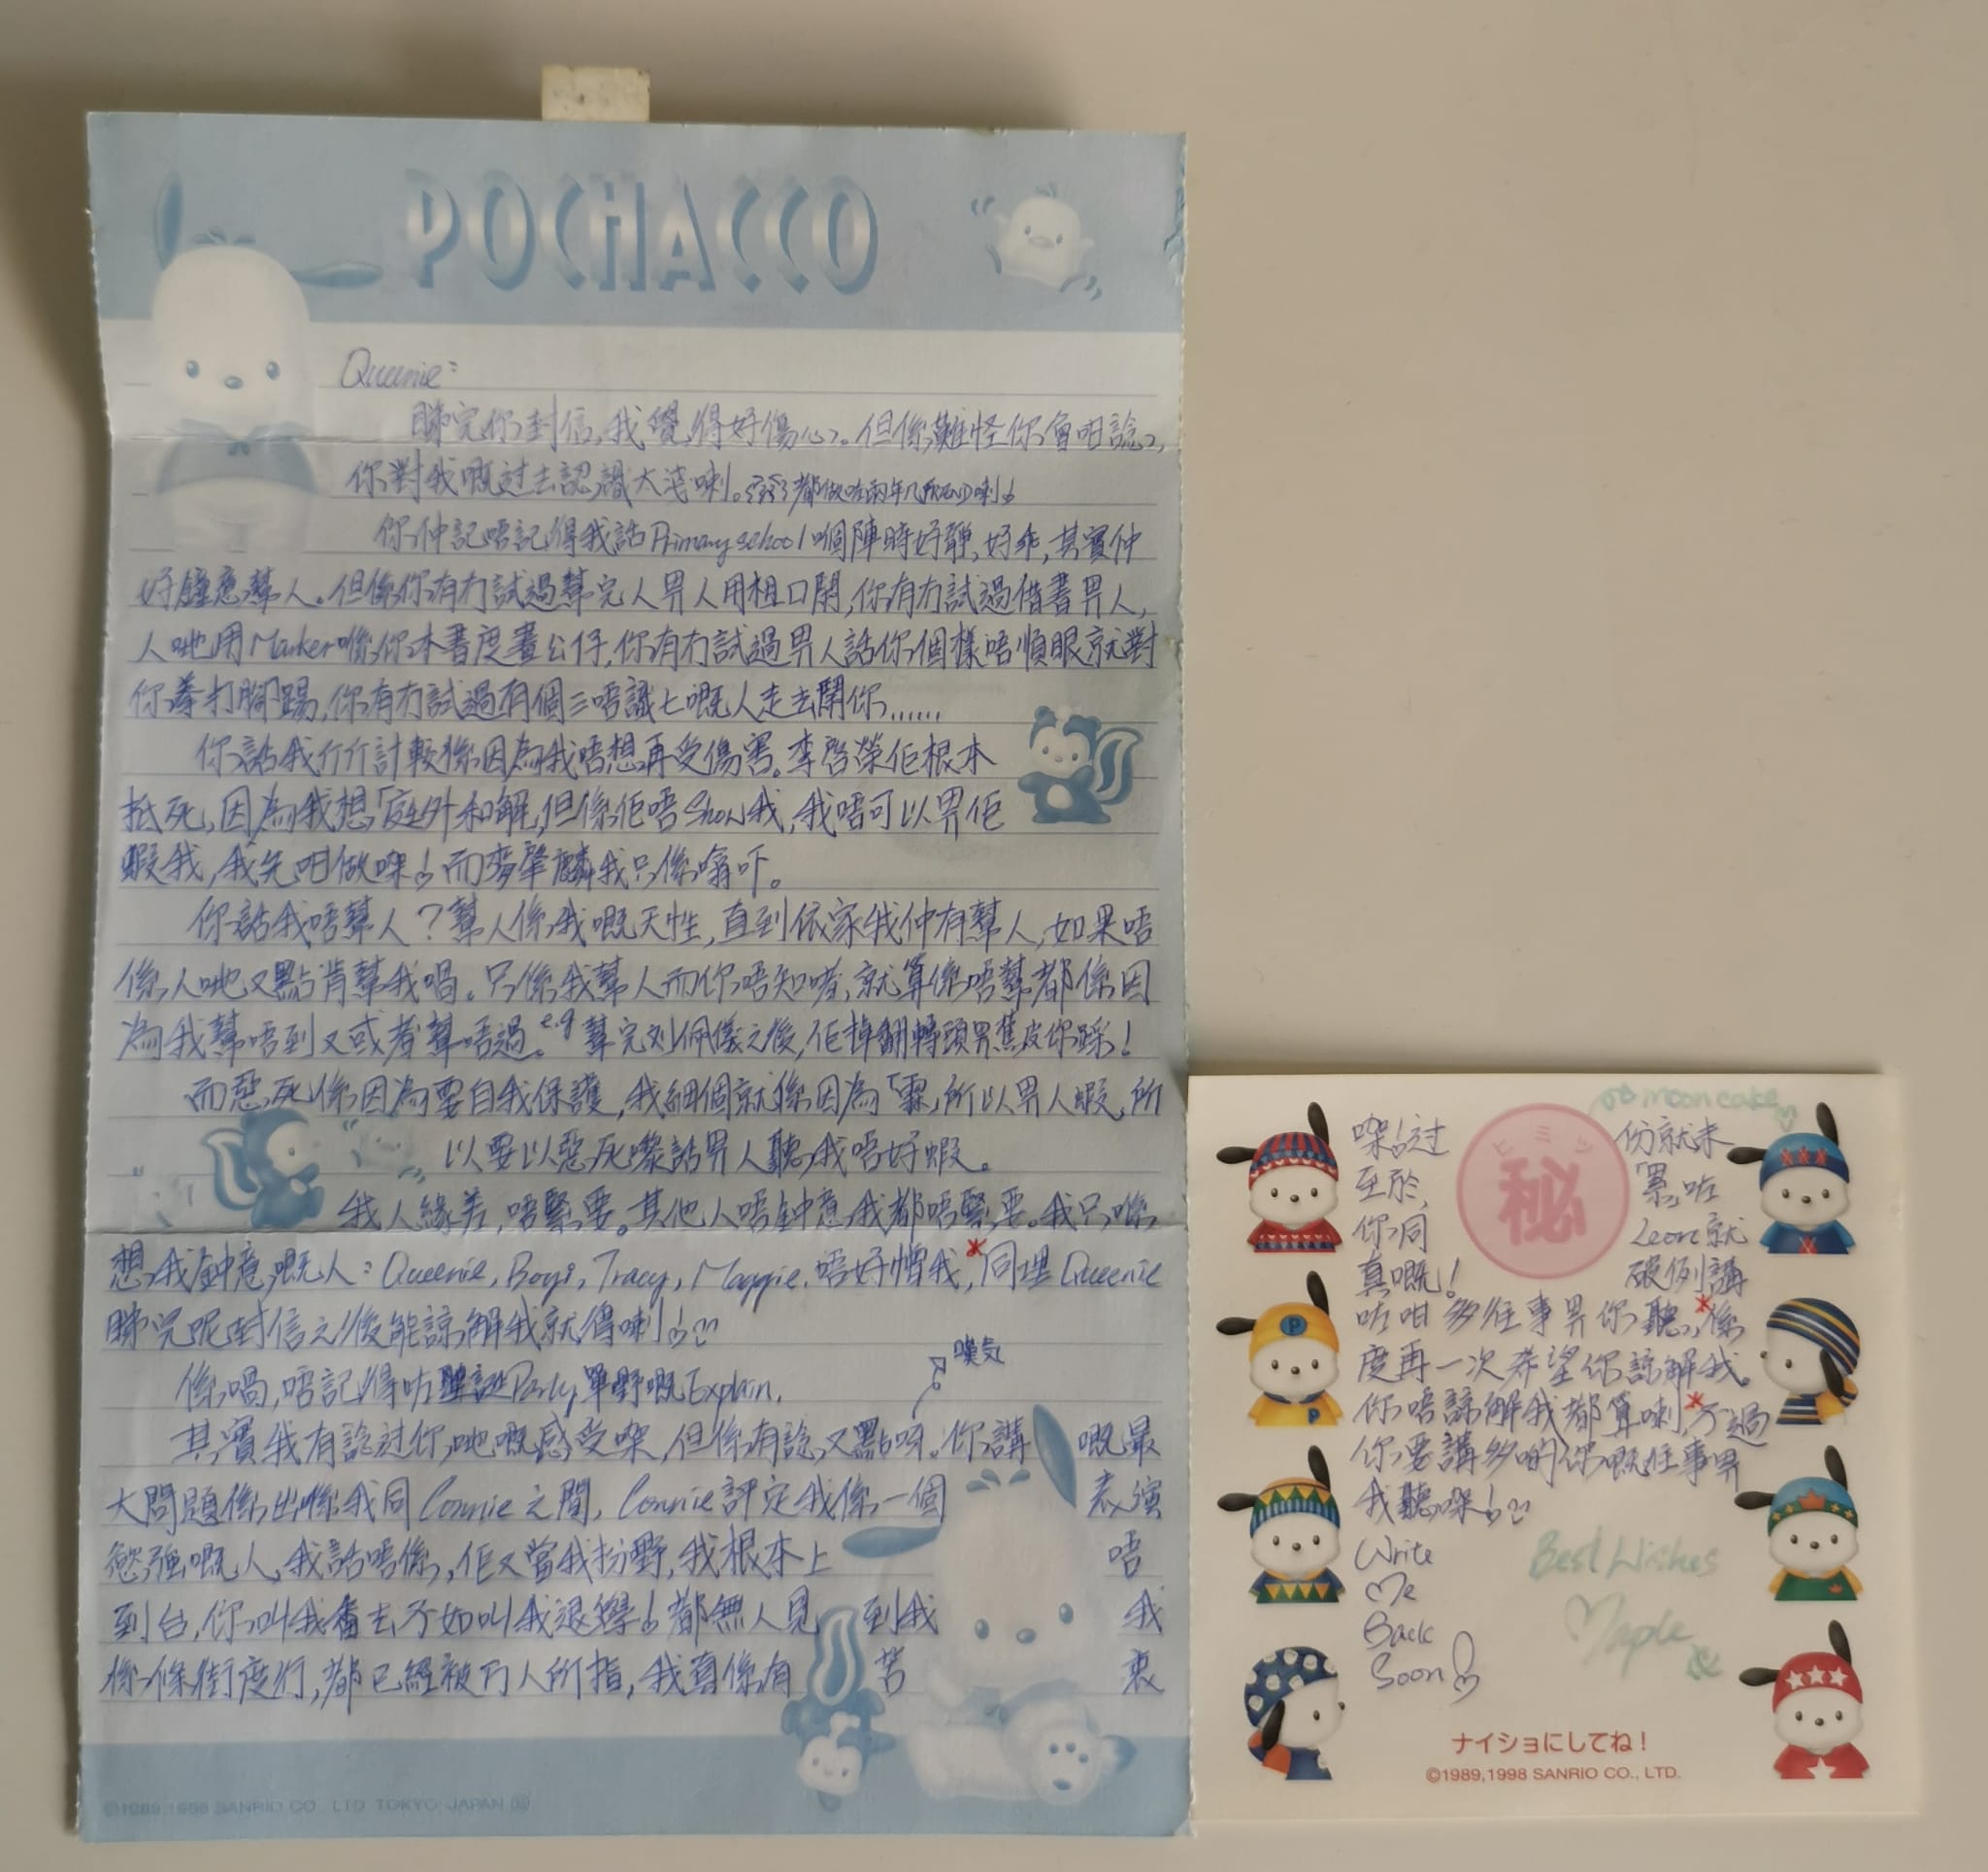 POCHACCO
Queenie:
睇完你封信,我覺得好傷心。但係難怪你會咁諗,
你對我嘅过去認識太淺喇。都做咗兩年几friend喇!
你仲記唔記得我話Primary school嗰陣時好靜,好乖,其實仲
好鐘意幫人。但係你有冇試過幫完人畀人用粗口鬧,你有冇試過借書畀人,
人哋用Marker喺你本書度畫公仔,你有冇試過畀人話你個樣唔順眼就對
你拳打腳踢,你有冇試過有個三唔識七嘅人走去鬧你......
你話我斤斤計較係因為我唔想再受傷害。李啓榮佢根本
抵死,因為我想「庭外和解」,但係佢唔Show我,我唔可以畀佢
蝦我,我先咁做㗎!而麥肇麟我只係噏吓。
你話我唔幫人?幫人係我嘅天性,直到依家我仲有幫人,如果唔
係人哋又點肯幫我喎。只係我幫人而你唔知啫,就算係唔幫都係因
為我幫唔到又或者幫唔過。e.g幫完刘佩儀之後,佢掉翻轉頭畀蕉皮你踩!
而惡死係因為要自我保護,我細個就係因為「霖」所以畀人蝦,所
以要以惡死嚟話畀人聽,我唔好蝦。
我人緣差,唔緊要。其他人唔鈡意我都唔緊要。我只係
想我鈡意嘅人:Queenie, Boyi, Tracy, Maggie.唔好憎我,*同埋Queenie
睇完呢封信之後能諒解我就得喇!
係喎,唔記得咗Party單嘢嘅Explain.
嘆気
其實我有諗过你哋嘅感受㗎,但係有諗又點呀。你講 嘅最
大問題係出喺我同Connie之間,Connie評定我係一個 表演
慾強嘅人,我話唔係,佢又當我扮嘢,我根本上 唔
到台,你叫我番去不如叫我退學!都無人見 到我 我
係條街度行,都已經被万人所指,我真係有 苦 衷
©1989,1998 SANRIO CO., LTD. TOKYO JAPAN
mooncake
㗎!过 份就未
至於, 累咗
你同 Leon就
真嘅! 破例講
ヒミツ
秘
咗咁多往事畀你聽,*係
度再一次希望你諒解我。
你唔諒解我都算喇,*不過
你要講多啲你嘅往事畀
我聽㗎!
Write
Me
Back
Soon!
Best Wishes
Maple
ナイショにしてね!
©1989,1998 SANRIO CO., LTD.